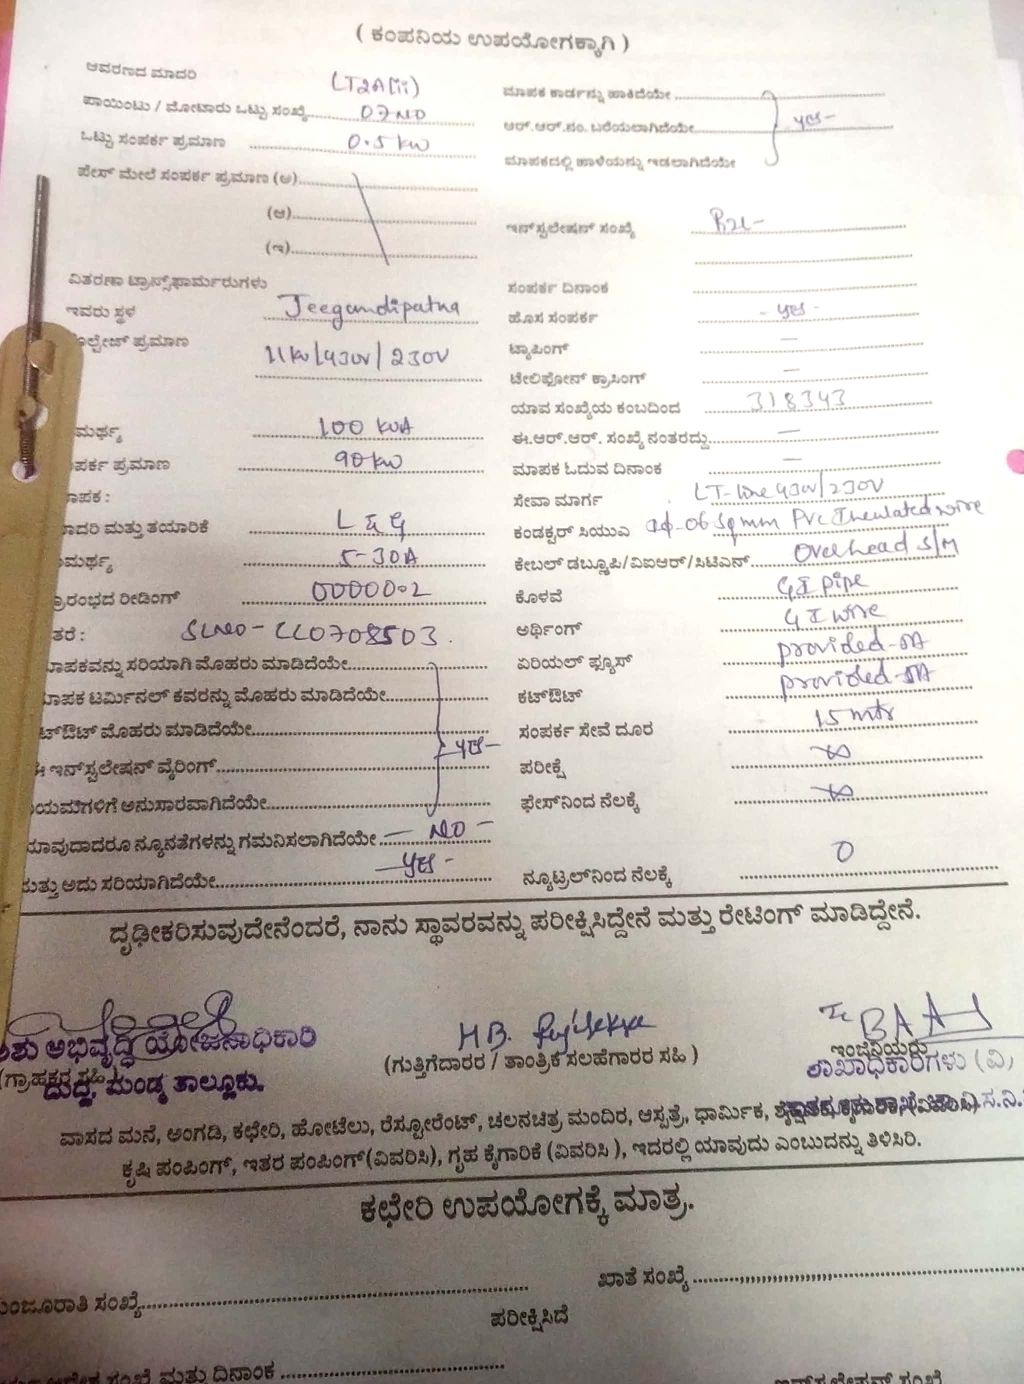 ( ಕಂಪನಿಯ ಉಪಯೋಗಕ್ಕಾಗಿ )
ಆವರಣದ ಮಾದರಿ LT2A(ii)
ಪಾಯಿಂಟು / ಮೋಟಾರು ಒಟ್ಟು ಸಂಖ್ಯೆ 07 NO
ಒಟ್ಟು ಸಂಪರ್ಕ ಪ್ರಮಾಣ 0.5 kw
ಪೇಸ್ ಮೇಲೆ ಸಂಪರ್ಕ ಪ್ರಮಾಣ (ಅ)
(ಆ)
(ಇ)
ವಿತರಣಾ ಟ್ರಾನ್ಸ್‌ಫಾರ್ಮರುಗಳು
ಇವರು ಸ್ಥಳ Jeegundipatna
ಪ್ರಮಾಣ 11kv/430v/230v
ಮರ್ಥ್ಯ 100 KVA
ಪರ್ಕ ಪ್ರಮಾಣ 90 kw
ಾಪಕ :
ಾದರಿ ಮತ್ತು ತಯಾರಿಕೆ L & G
ಾಮರ್ಥ್ಯ 5-30A
್ರಾರಂಭದ ರೀಡಿಂಗ್ 0000002
ತರೆ : SLNO- CC0708503.
ಾಪಕವನ್ನು ಸರಿಯಾಗಿ ಮೊಹರು ಮಾಡಿದೆಯೇ
ಾಪಕ ಟರ್ಮಿನಲ್ ಕವರನ್ನು ಮೊಹರು ಮಾಡಿದೆಯೇ
ಟ್‌ಔಟ್ ಮೊಹರು ಮಾಡಿದೆಯೇ yes-
ಈ ಇನ್‌ಸ್ಟಲೇಷನ್ ವೈರಿಂಗ್
ಯಮಗಳಿಗೆ ಅನುಸಾರವಾಗಿದೆಯೇ
ಯಾವುದಾದರೂ ನ್ಯೂನತೆಗಳನ್ನು ಗಮನಿಸಲಾಗಿದೆಯೇ - NO -
ಮತ್ತು ಅದು ಸರಿಯಾಗಿದೆಯೇ - yes -
ಮಾಪಕ ಕಾರ್ಡನ್ನು ಹಾಕಿದೆಯೇ
ಆರ್.ಆರ್.ನಂ. ಬರೆಯಲಾಗಿದೆಯೇ yes-
ಮಾಪಕದಲ್ಲಿ ಹಾಳೆಯನ್ನು ಇಡಲಾಗಿದೆಯೇ
ಇನ್‌ಸ್ಟಲೇಷನ್ ಸಂಖ್ಯೆ
ಸಂಪರ್ಕ ದಿನಾಂಕ
ಹೊಸ ಸಂಪರ್ಕ - yes -
ಟ್ಯಾಪಿಂಗ್ -
ಟೇಲಿಫೋನ್ ಕ್ರಾಸಿಂಗ್ -
ಯಾವ ಸಂಖ್ಯೆಯ ಕಂಬದಿಂದ 318343
ಈ.ಆರ್.ಆರ್. ಸಂಖ್ಯೆ ನಂತರದ್ದು -
ಮಾಪಕ ಓದುವ ದಿನಾಂಕ -
ಸೇವಾ ಮಾರ್ಗ LT-line 430v/230v
ಕಂಡಕ್ಟರ್ ಸಿಯುಎ 06 Sqmm PVC Insulated wire
ಕೇಬಲ್ ಡಬ್ಲೂಪಿ/ವಿಐಆರ್/ಸಿಟಿಎನ್ Overhead S/M
ಕೊಳವೆ GI pipe
ಅರ್ಥಿಂಗ್ GI wire
ಏರಿಯಲ್ ಫ್ಯೂಸ್ provided-5A
ಕಟ್‌ಔಟ್ provided-5A
ಸಂಪರ್ಕ ಸೇವೆ ದೂರ 15 mtr
ಪರೀಕ್ಷೆ ∞
ಫೇಸ್‌ನಿಂದ ನೆಲಕ್ಕೆ ∞
ನ್ಯೂಟ್ರಲ್‌ನಿಂದ ನೆಲಕ್ಕೆ 0
ದೃಢೀಕರಿಸುವುದೇನೆಂದರೆ, ನಾನು ಸ್ಥಾವರವನ್ನು ಪರೀಕ್ಷಿಸಿದ್ದೇನೆ ಮತ್ತು ರೇಟಿಂಗ್ ಮಾಡಿದ್ದೇನೆ.
ಶಿಶು ಅಭಿವೃದ್ಧಿ ಯೋಜನಾಧಿಕಾರಿ
(ಗ್ರಾಹಕನ ಸಹಿ)
ದುದ್ದ, ಮಂಡ್ಯ ತಾಲ್ಲೂಕು.
H.B.
(ಗುತ್ತಿಗೆದಾರರ / ತಾಂತ್ರಿಕ ಸಲಹೆಗಾರರ ಸಹಿ )
ಇಂಜಿನಿಯರು
ಶಾಖಾಧಿಕಾರಿಗಳು (ವಿ)
ವಾಸದ ಮನೆ, ಅಂಗಡಿ, ಕಛೇರಿ, ಹೋಟೆಲು, ರೆಸ್ಟೋರೆಂಟ್, ಚಲನಚಿತ್ರ ಮಂದಿರ, ಆಸ್ಪತ್ರೆ, ಧಾರ್ಮಿಕ,
ಕೃಷಿ ಪಂಪಿಂಗ್, ಇತರ ಪಂಪಿಂಗ್(ವಿವರಿಸಿ), ಗೃಹ ಕೈಗಾರಿಕೆ (ವಿವರಿಸಿ ), ಇದರಲ್ಲಿ ಯಾವುದು ಎಂಬುದನ್ನು ತಿಳಿಸಿರಿ.
ಕಛೇರಿ ಉಪಯೋಗಕ್ಕೆ ಮಾತ್ರ.
ಮಂಜೂರಾತಿ ಸಂಖ್ಯೆ
ಖಾತೆ ಸಂಖ್ಯೆ
ಪರೀಕ್ಷಿಸಿದೆ
ಸಂಖ್ಯೆ ಮತ್ತು ದಿನಾಂಕ
ಇನ್‌ಸ್ಟಲೇಷನ್ ಸಂಖ್ಯೆ